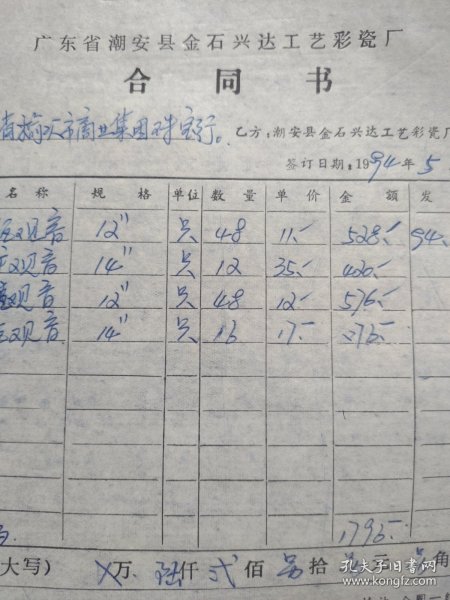 广东省潮安县金石兴达工艺彩瓷厂
合同书
省榆次市商业集团珠宝行。 乙方：潮安县金石兴达工艺彩瓷厂
签订日期：1994年5
名称 规格 单位 数量 单价 金额 发
观音 12" 只 48 11.- 528.- 94.
观音 14" 只 12 35.- 420.-
观音 12" 只 48 12.- 576.-
观音 14" 只 16 17.-
1795.-
大写) 万 仟 弍佰 拾 元 角
孔夫子旧书网